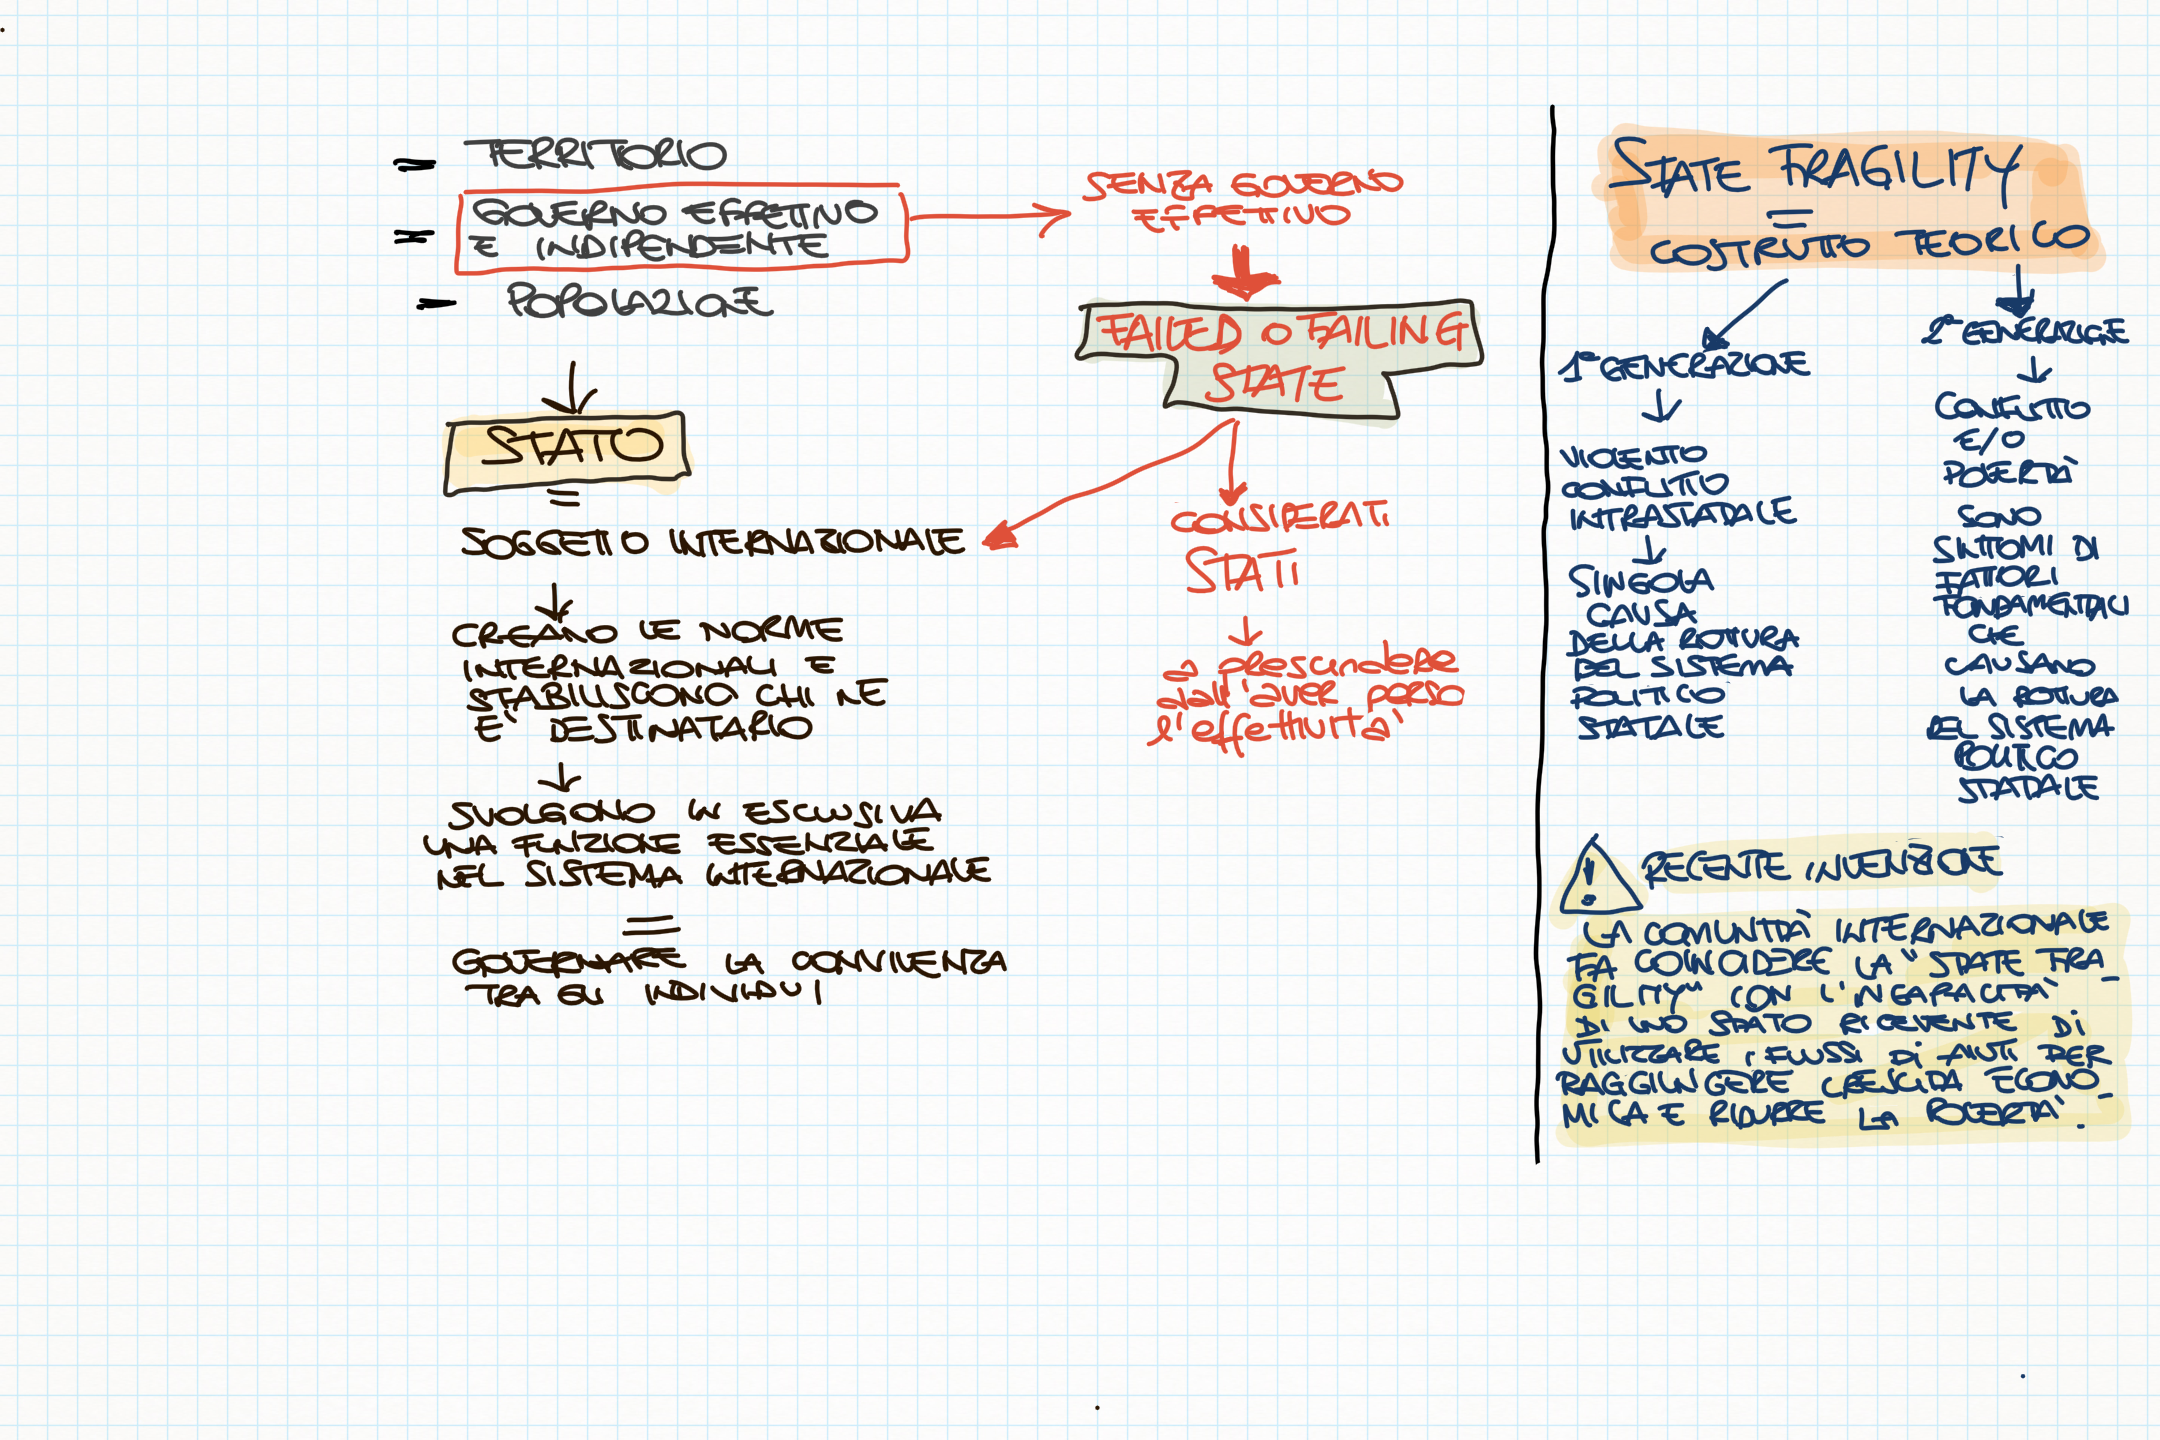 - TERRITORIO
- GOVERNO EFFETTIVO
E INDIPENDENTE
- POPOLAZIONE
STATO
=
SOGGETTO INTERNAZIONALE
CREANO LE NORME
INTERNAZIONALI E
STABILISCONO CHI NE
E' DESTINATARIO
SVOLGONO IN ESCLUSIVA
UNA FUNZIONE ESSENZIALE
NEL SISTEMA INTERNAZIONALE
=
GOVERNARE LA CONVIVENZA
TRA GLI INDIVIDUI
SENZA GOVERNO
EFFETTIVO
FAILED O FAILING
STATE
CONSIDERATI
STATI
a prescindere
dall'aver perso
l'effettività
STATE FRAGILITY
=
COSTRUTTO TEORICO
1ª GENERAZIONE
VIOLENTO
CONFLITTO
INTRASTATALE
SINGOLA
CAUSA
DELLA ROTTURA
DEL SISTEMA
POLITICO
STATALE
2ª GENERAZIONE
CONFLITTO
E/O
POVERTÀ
SONO
SINTOMI DI
FATTORI
FONDAMENTALI
CHE
CAUSANO
LA ROTTURA
DEL SISTEMA
POLITICO
STATALE
! RECENTE INVENZIONE
LA COMUNITÀ INTERNAZIONALE
FA COINCIDERE LA "STATE FRA_
GILITY" CON L'INCAPACITA'
DI UNO STATO RICEVENTE DI
UTILIZZARE I FLUSSI DI AIUTI PER
RAGGIUNGERE CRESCITA ECONO_
MICA E RIDURRE LA POVERTA'.